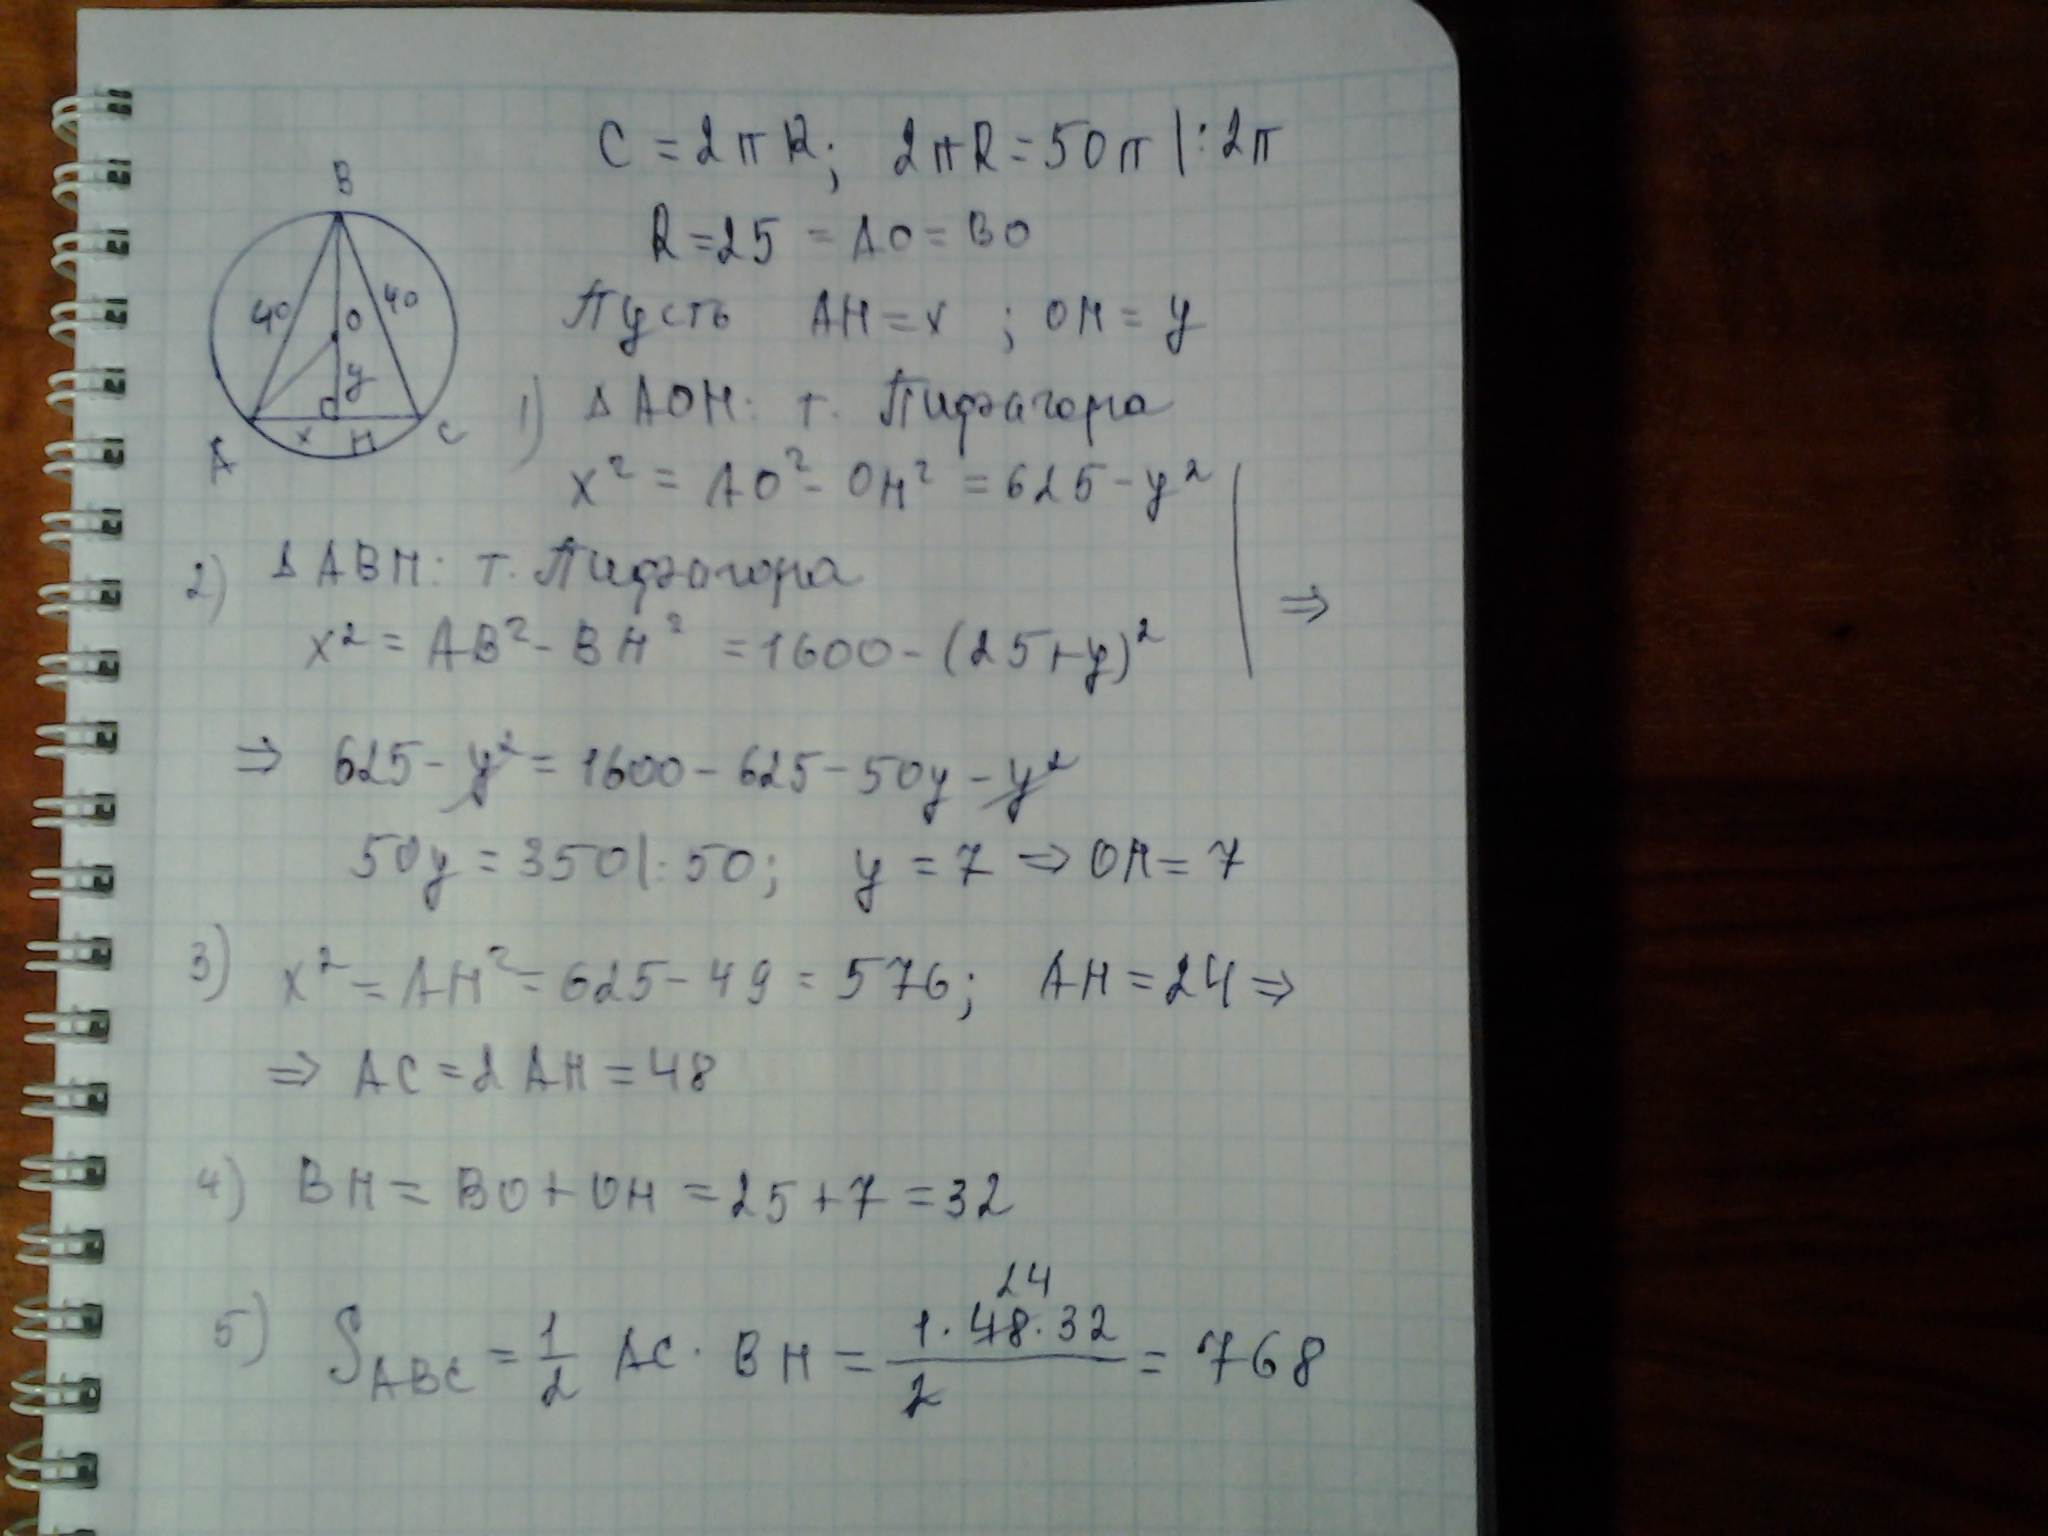 C = 2πR; 2πR = 50π |:2π
R = 25 = AO = BO
Пусть AH = x ; OH = y
B
40
40
O
y
x
H
A
C
1) Δ AOH: т. Пифагора
x² = AO² - OH² = 625 - y²
2) Δ ABH: т. Пифагора
x² = AB² - BH² = 1600 - (25+y)²
⇒
⇒ 625 - y² = 1600 - 625 - 50y - y²
50y = 350 |:50; y = 7 ⇒ OH = 7
3) x² = AH² = 625 - 49 = 576; AH = 24 ⇒
⇒ AC = 2AH = 48
4) BH = BO + OH = 25 + 7 = 32
24
5) S_ABC = 1/2 AC · BH = 1·48·32/2 = 768